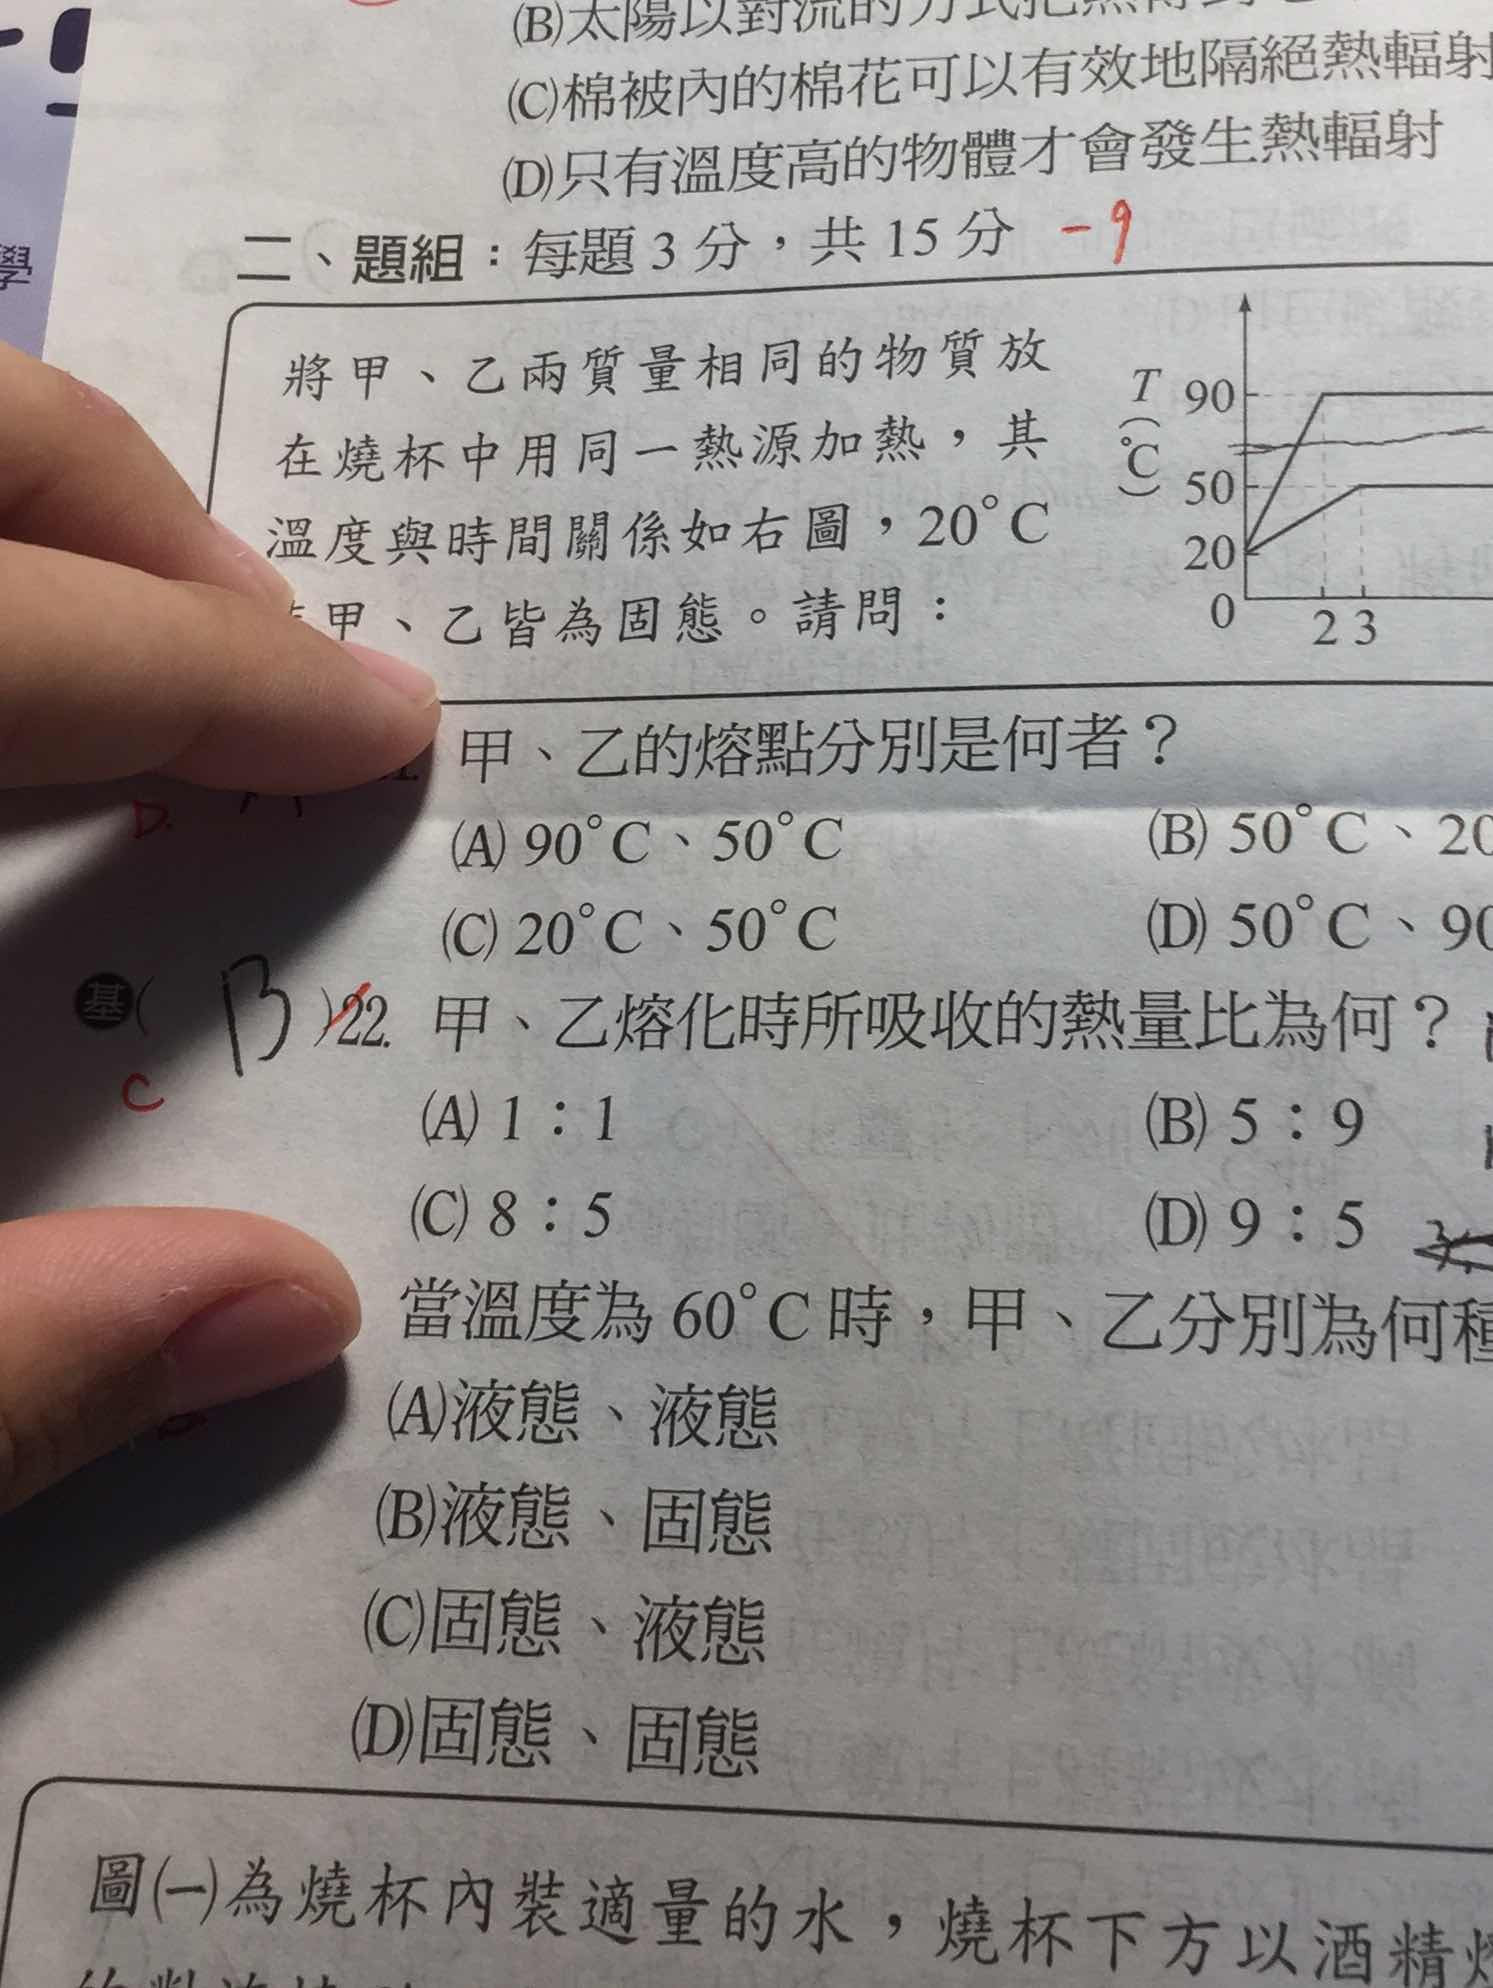 學
(B)太陽以對流的方式把熱
(C)棉被內的棉花可以有效地隔絕熱輻射
(D)只有溫度高的物體才會發生熱輻射
二、題組：每題 3 分，共 15 分 -9
將甲、乙兩質量相同的物質放
在燒杯中用同一熱源加熱，其
溫度與時間關係如右圖，20°C
甲、乙皆為固態。請問：
T
(°C)
90
50
20
0
2 3
甲、乙的熔點分別是何者？
D.
(A) 90°C、50°C
(B) 50°C、20
(C) 20°C、50°C
(D) 50°C、90
基( B )22. 甲、乙熔化時所吸收的熱量比為何？
C
(A) 1：1
(B) 5：9
(C) 8：5
(D) 9：5
當溫度為 60°C 時，甲、乙分別為何種
(A)液態、液態
(B)液態、固態
(C)固態、液態
(D)固態、固態
圖(一)為燒杯內裝適量的水，燒杯下方以酒精燈